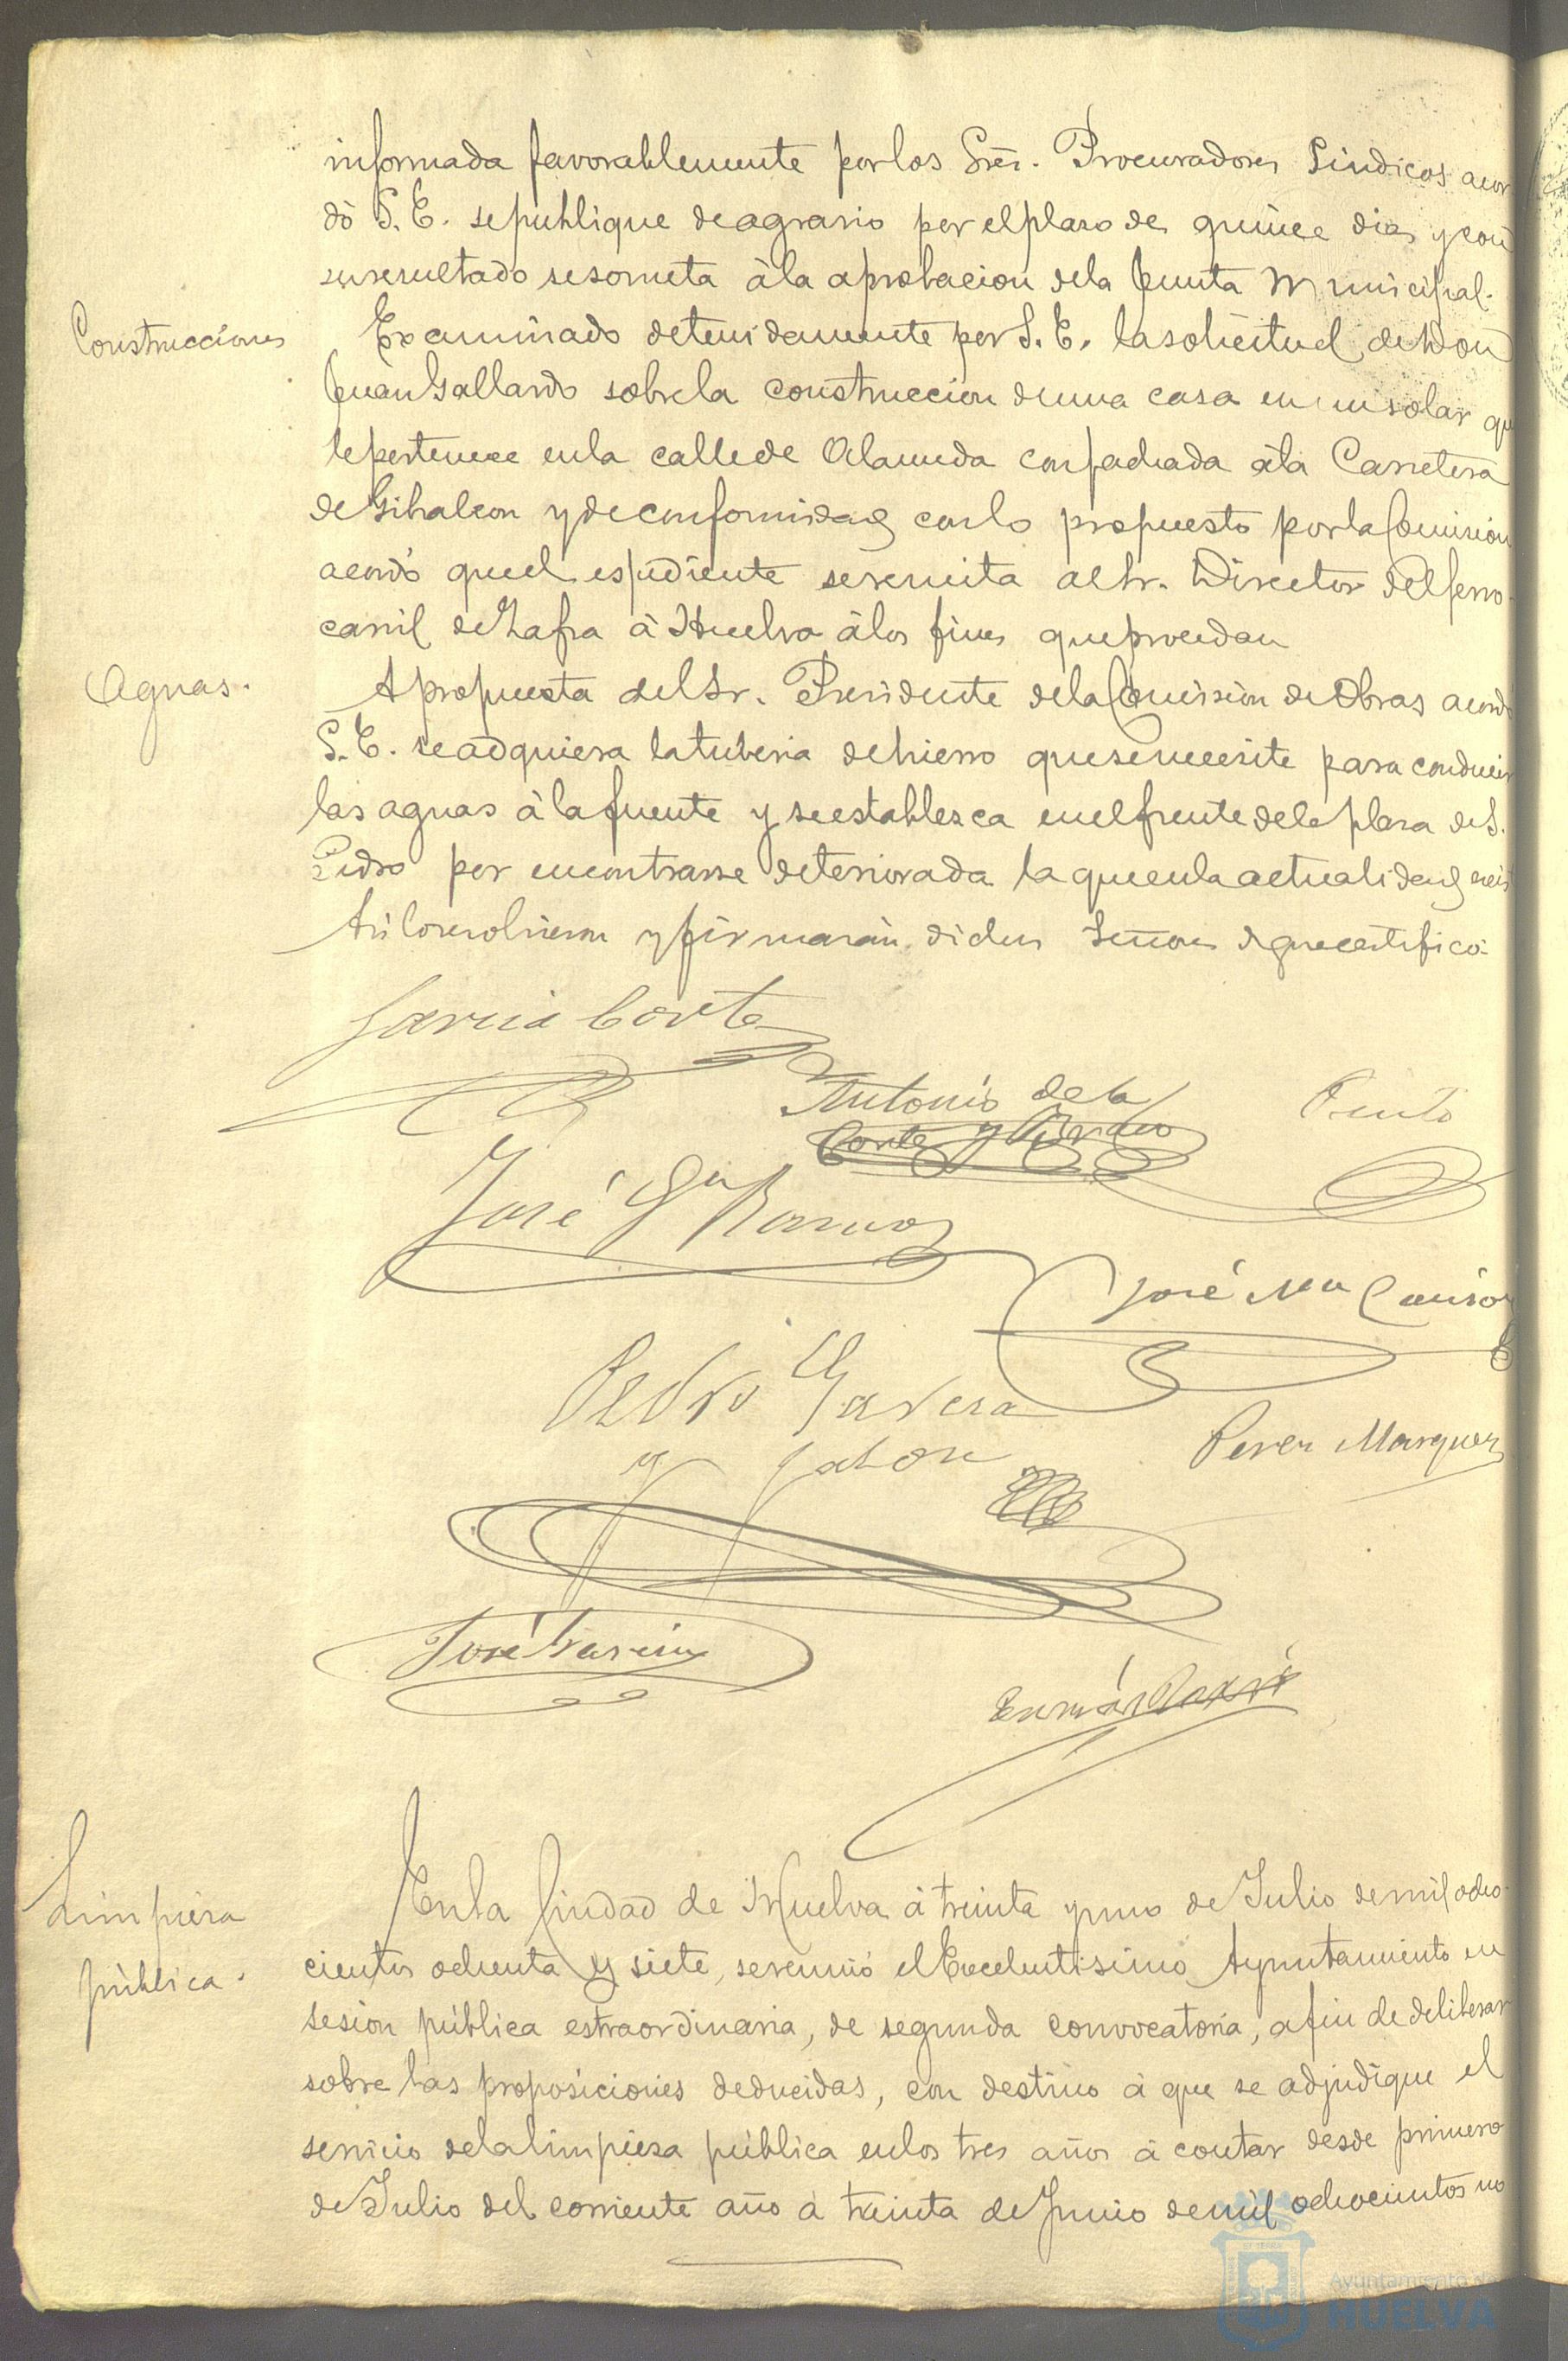 informada favorablemente por los Sres. Procuradores Sindicos acor
dó S. E. se publique de agravio por el plaso de quince dias y con
su resultado se someta á la aprobacion de la Junta Municipal.
Construcciones
Examinado detenidamente por S. E. la solicitud de Don
Juan Gallardo sobre la construccion de una casa en un solar que
le pertenece en la calle de Alameda con fachada á la Carretera
de Gibraleon y de conformidad con lo propuesto por la Comision
acordó que el espediente se remita al Sr. Director del ferro-
carril de Zafra á Huelva á los fines que procedan
Aguas.
A propuesta del Sr. Presidente de la Comision de Obras acordó
S. E. se adquiera la tuberia de hierro que se necesite para conducir
las aguas á la fuente y se establezca en el frente de la plaza de S.
Pedro por encontrarse deteriorada la que en la actualidad
Asi lo resolvieron y firmarán dichos Señores de que certifico.
Garcia Corte
Antonio de la
Corte y
Pinto
José Ga Ramos
José Ma
Pedro Garcia
y Jalon
Perez Marquez
José Garcia
Limpiesa
pública.
En la Ciudad de Huelva á treinta y uno de Julio de mil ocho-
cientos ochenta y siete, se reunió el Excelentisimo Ayuntamiento en
sesion pública estraordinaria, de segunda convocatoria, a fin de deliberar
sobre las proposiciones deducidas, con destino á que se adjudique el
servicio de la limpiesa pública en los tres años á contar desde primero
de Julio del corriente año á treinta de Junio de mil ochocientos no
Ayuntamiento de
HUELVA